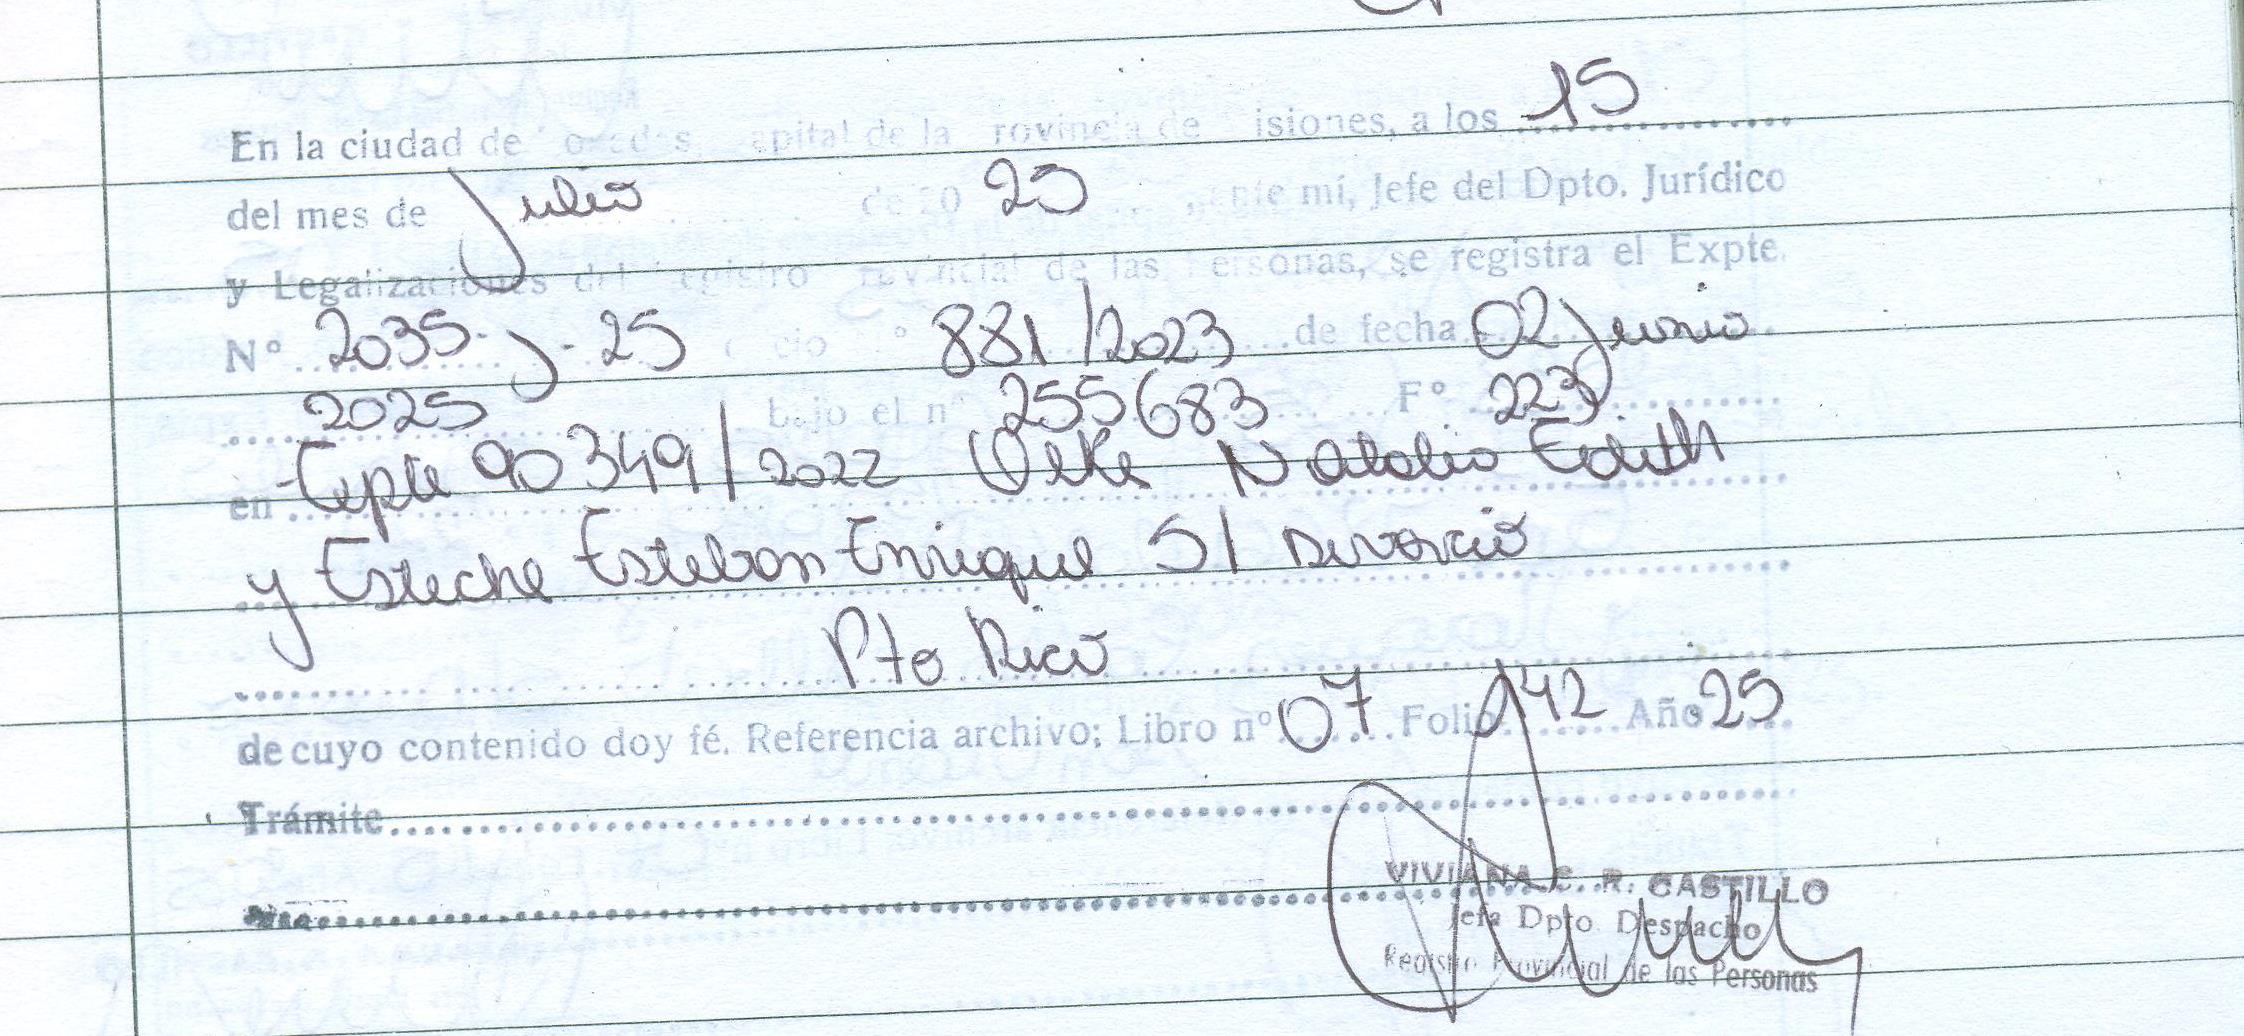 En la ciudad de Posadas, capital de la Provincia de Misiones, a los 15
del mes de Julio de 20 25, ante mí, Jefe del Dpto. Jurídico
y Legalizaciones del Registro Provincial de las Personas, se registra el Expte.
N° 2035-J-25 oficio n° 881/2023 de fecha 02 Junio
2025 bajo el n° 255683 F° 223
en Expte 90349/2022 Natalia Edith
y Esteche Esteban Enrique S/ Divorcio
Pto Rico
de cuyo contenido doy fé. Referencia archivo; Libro n° 07 Folio 142 Año 25
Trámite
VIVIANA C. R. CASTILLO
Jefa Dpto Despacho
Registro Provincial de las Personas